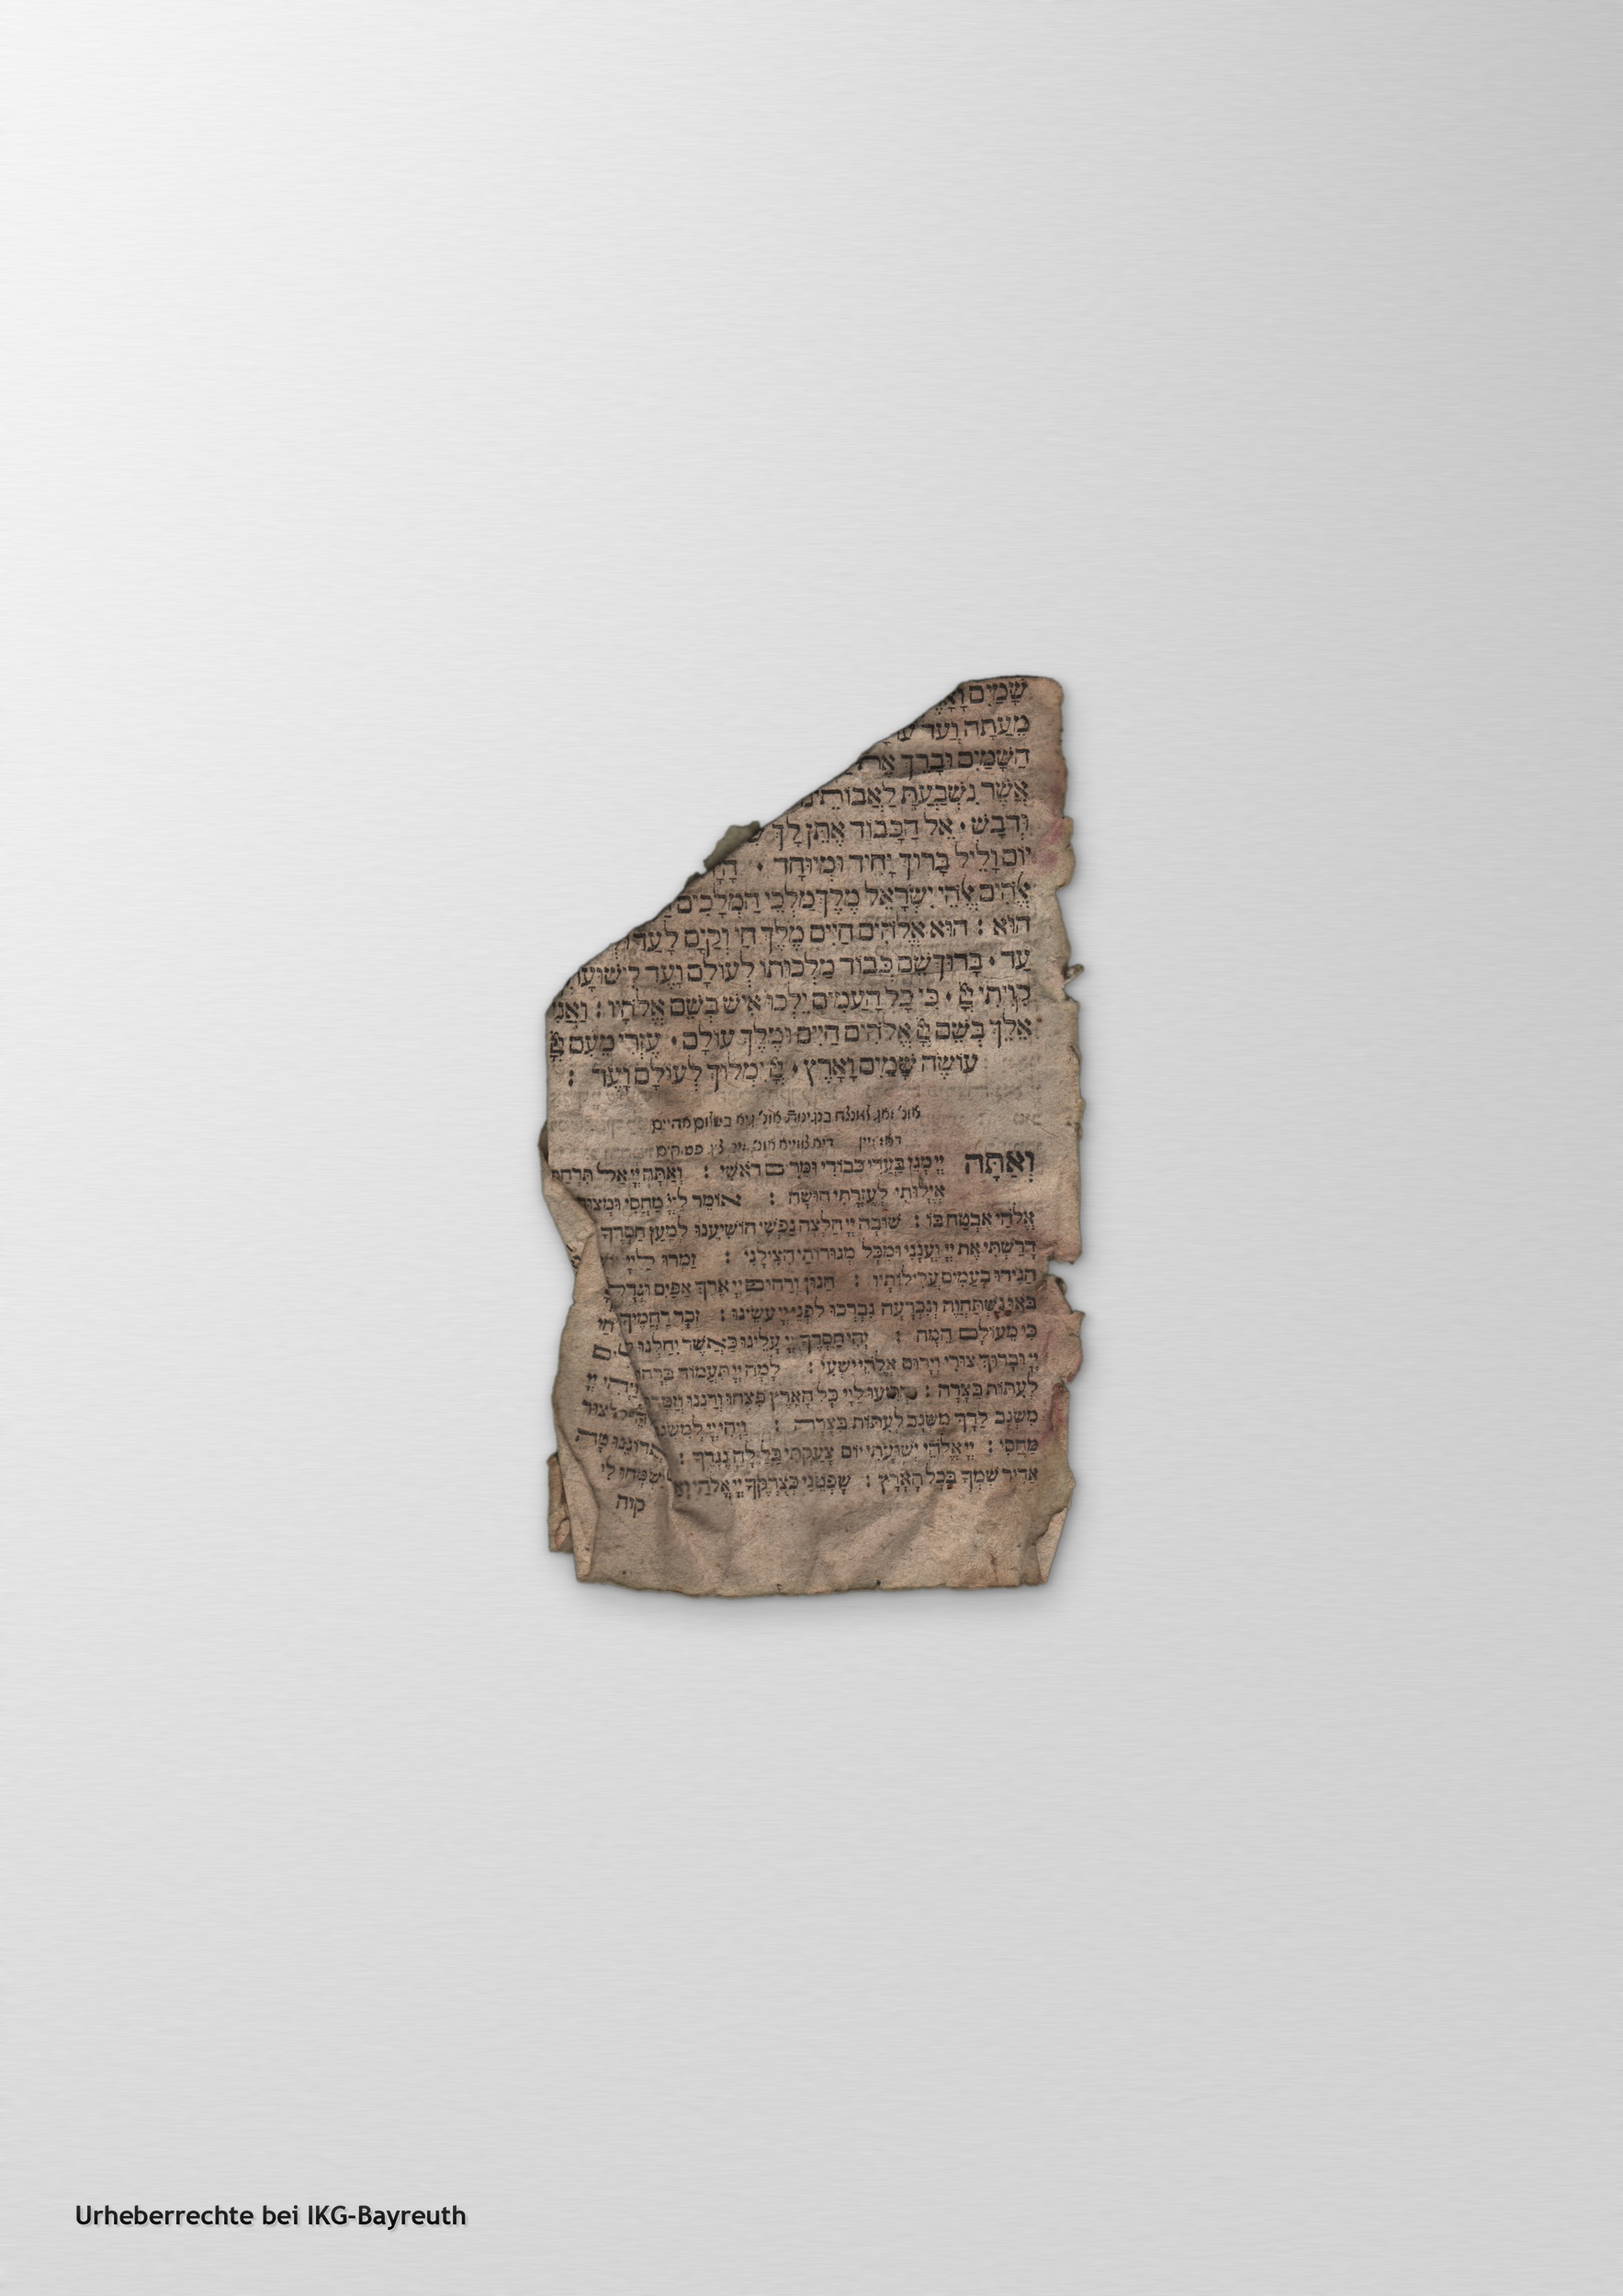 שָׁמַיִם וָאָ
מֵעַתָּה וְעַד עו
הַשָּׁמַיִם וּבָרֵךְ אֶת
אֲשֶׁר נִשְׁבַּעְתָּ לַאֲבוֹתֵינוּ
וּדְבַשׁ · אֵל הַכָּבוֹד אֶתֵּן לָךְ
יוֹם וָלֵיל בָּרוּךְ יָחִיד וּמְיוּחָד ·
אֱהִים אֱהֵי יִשְׂרָאֵל מֶלֶךְ מַלְכֵי הַמְּלָכִים
הוּא : הוּא אֱלֹהִים חַיִּים מֶלֶךְ חַי וְקַיָּם לָעַד
עַד · בָּרוּךְ שֵׁם כְּבוֹד מַלְכוּתוֹ לְעוֹלָם וָעֶד לִישׁוּעָ
קִוִּיתִי יְיָ · כִּי כָּל הָעַמִּים יֵלְכוּ אִישׁ בְּשֵׁם אֱלֹהָיו : וַאֲנִי
אֵלֵךְ בְּשֵׁם יְיָ אֱלֹהִים חַיִּים וּמֶלֶךְ עוֹלָם · עֶזְרִי מֵעִם יְיָ
עוֹשֵׂה שָׁמַיִם וָאָרֶץ · יְיָ יִמְלוֹךְ לְעוֹלָם וָעֶד :
וְאַתָּה יְיָ מָגֵן בַּעֲדִי כְּבוֹדִי וּמֵרִים רֹאשִׁי : וְאַתָּה יְיָ אַל תִּרְחַק
אֱיָלוּתִי לְעֶזְרָתִי חוּשָׁה : אוֹמַר לַיְיָ מַחְסִי וּמְצוּ
אֱלֹהַי אֶבְטַח בּוֹ : שׁוּבָה יְיָ חַלְּצָה נַפְשִׁי הוֹשִׁיעֵנוּ לְמַעַן חַסְדֶּךָ
דָּרַשְׁתִּי אֶת יְיָ וְעָנָנִי וּמִכָּל מְגוּרוֹתַי הִצִּילָנִי : זַמְּרוּ לַיְיָ
הַגִּידוּ בָעַמִּים עֲלִילוֹתָיו : חַנּוּן וְרַחוּם יְיָ אֶרֶךְ אַפַּיִם וּגְדָל
בֹּאוּ נִשְׁתַּחֲוֶה וְנִכְרָעָה נִבְרְכָה לִפְנֵי יְיָ עֹשֵׂינוּ : זְכֹר רַחֲמֶיךָ
כִּי מֵעוֹלָם הֵמָּה : יְהִי חַסְדְּךָ יְיָ עָלֵינוּ כַּאֲשֶׁר יִחַלְנוּ
יְיָ וּבָרוּךְ צוּרִי וְיָרוּם אֱלֹהֵי יִשְׁעִי : לָמָה יְיָ תַּעֲמוֹד בְּרָח
לְעִתּוֹת בַּצָּרָה : הָרִיעוּ לַיְיָ כָּל הָאָרֶץ פִּצְחוּ וְרַנְּנוּ וְזַמֵּ
מִשְׂגָּב לַדָּךְ מִשְׂגָּב לְעִתּוֹת בַּצָּרָה : וַיְהִי יְיָ לְמִשְׂגָּ
מַחְסִי : יְיָ אֱלֹהֵי יְשׁוּעָתִי יוֹם צָעַקְתִּי בַלַּיְלָה נֶגְדֶּךָ :
אַדִּיר שִׁמְךָ בְּכָל הָאָרֶץ : שָׁפְטֵנִי כְצִדְקְךָ יְיָ אֱלֹהַי וְאַ
קוה
Urheberrechte bei IKG-Bayreuth